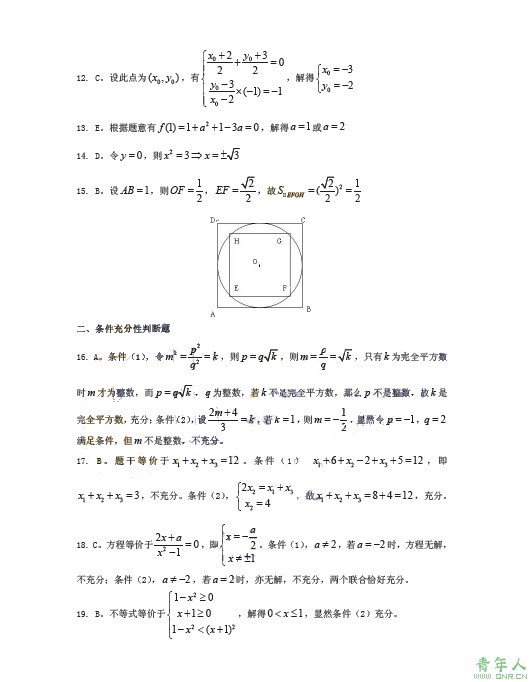 12. C。设此点为(x₀, y₀)，有{(x₀+2)/2 + (y₀+3)/2 = 0, (y₀−3)/(x₀−2)×(−1)=−1，解得{x₀=−3, y₀=−2
13. E。根据题意有 f(1)=1+a²+1−3a=0，解得a=1或a=2
14. D。令 y=0，则x²=3⇒x=±√3
15. B。设 AB=1，则OF=1/2，EF=√2/2，故S▱EFGH=(√2/2)²=1/2
D C
H G
O
E F
A B
二、条件充分性判断题
16. A。条件（1），令m²=p²/q²=k，则p=q√k，则m=p/q=√k，只有k为完全平方数
时m才为整数，而p=q√k，q为整数，若k不是完全平方数，那么p不是整数，故k是
完全平方数，充分；条件(2)，设(2m+4)/3=k，若k=1，则m=−1/2，显然令p=−1，q=2
满足条件，但m不是整数，不充分。
17. B。题干等价于x₁+x₂+x₃=12。条件（1） x₁+6+x₂−2+x₃+5=12，即
x₁+x₂+x₃=3，不充分。条件（2），{2x₂=x₁+x₃, x₂=4，故x₁+x₂+x₃=8+4=12，充分。
18. C。方程等价于(2x+a)/(x²−1)=0，即{x=−a/2, x≠±1。条件（1），a≠2，若a=−2时，方程无解，
不充分；条件（2），a≠−2，若a=2时，亦无解，不充分，两个联合恰好充分。
19. B。不等式等价于{1−x²≥0, x+1≥0, 1−x²<(x+1)²，解得0<x≤1，显然条件（2）充分。
青年人
WWW.QNR.CN